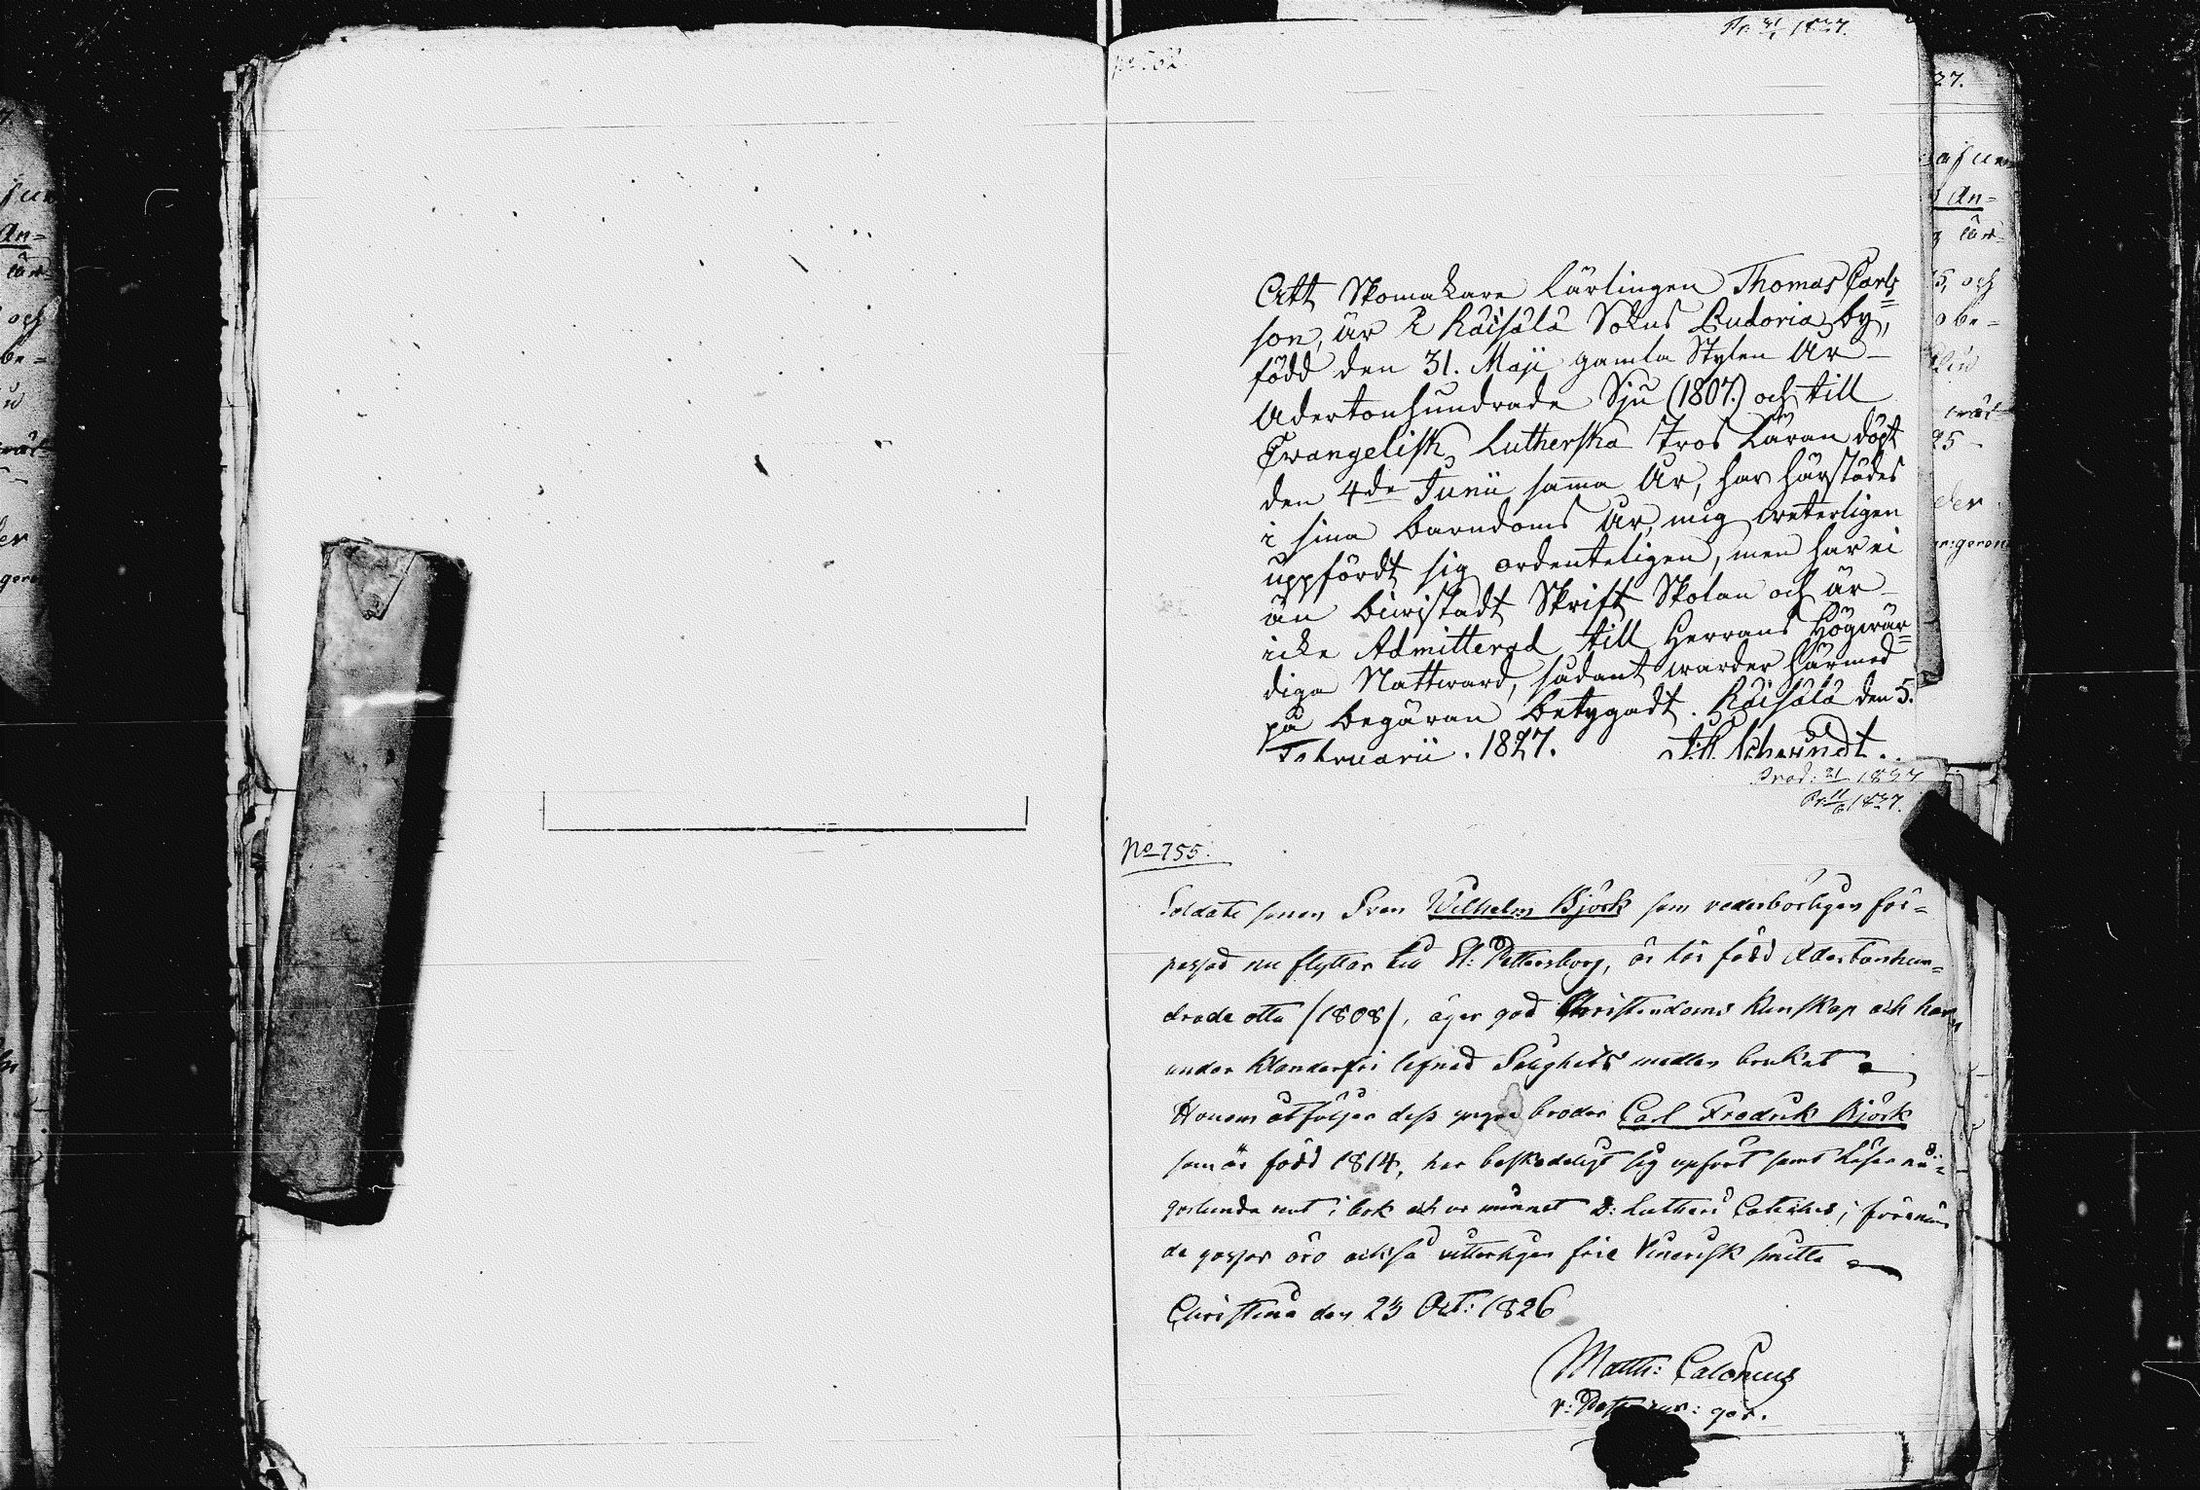 Pr. 31/1 1827.
Att Skomakare Lärlingen Thomas Carls=
son, är i Räisälä Sokns Ludoria by,
född den 31. Maji gamla Stylen År
Adertonhundrade Sju (1807.) och till
Evangelisk Lutherska Tros Läran döpt
den 4de Junii samma År, har härstädes
i sina barndoms År, mig veterligen
uppfördt sig ordenteligen, men har ei
än bevistadt Skrift Skolan och är
icke Admitterad till Herrans Högwär=
diga Nattward, sådant warder härmed
på begäran betygadt. Räisälä den 5.
Februarii. 1827.
Prod: 21/ 1827
Pr. 11/6 1827.
No 755.
Soldats sonen Sven Wilhelm Björk som vederbörligen för=
passad nu flyttar till St: Pettersborg, är här född Adertonhun=
drade otta /1808/, äger god Christendoms Kunskap och har
under klanderfri lefnad Salighets medlen brukat
Honom åtföljer dess yngre broder Carl Fredrik Björk
som är född 1814, har beskedeligt sig upfört samt läser nå=
gorlunda rent i bok och ur minnet D: Lutheri Cateches; förenäm
de gossar äro också vitterligen frie Venerisk smitta
Christina den 23 Oct: 1826
Matth: Calonius
27.
An=
och
be=
25